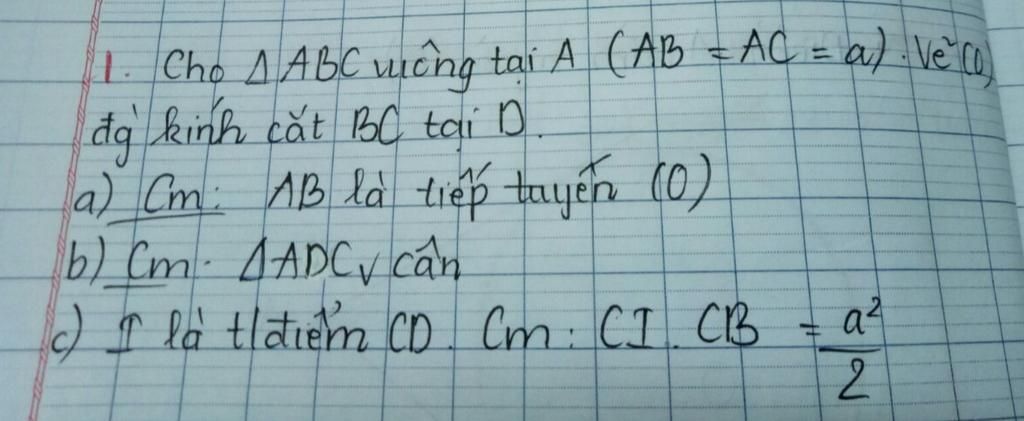 1. Cho Δ ABC vuông tại A (AB = AC = a). Vẽ (O)
đg kính cắt BC tại D.
a) Cm: AB là tiếp tuyến (O)
b) Cm. ΔADC v cân
c) I là t/điểm CD. Cm: CI. CB = a²/2